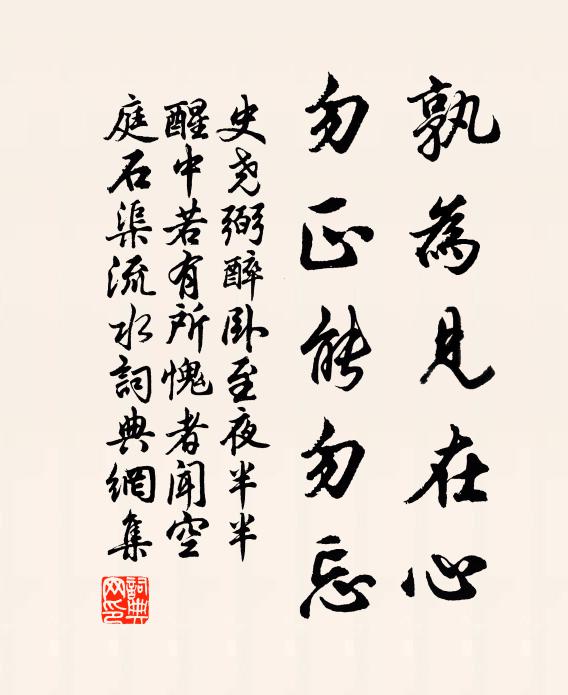 孰為見在心
勿正能勿忘
史尧弼醉卧至夜半半
醒中若有所愧者闻空
庭石渠流水詞典網集
詞典网印